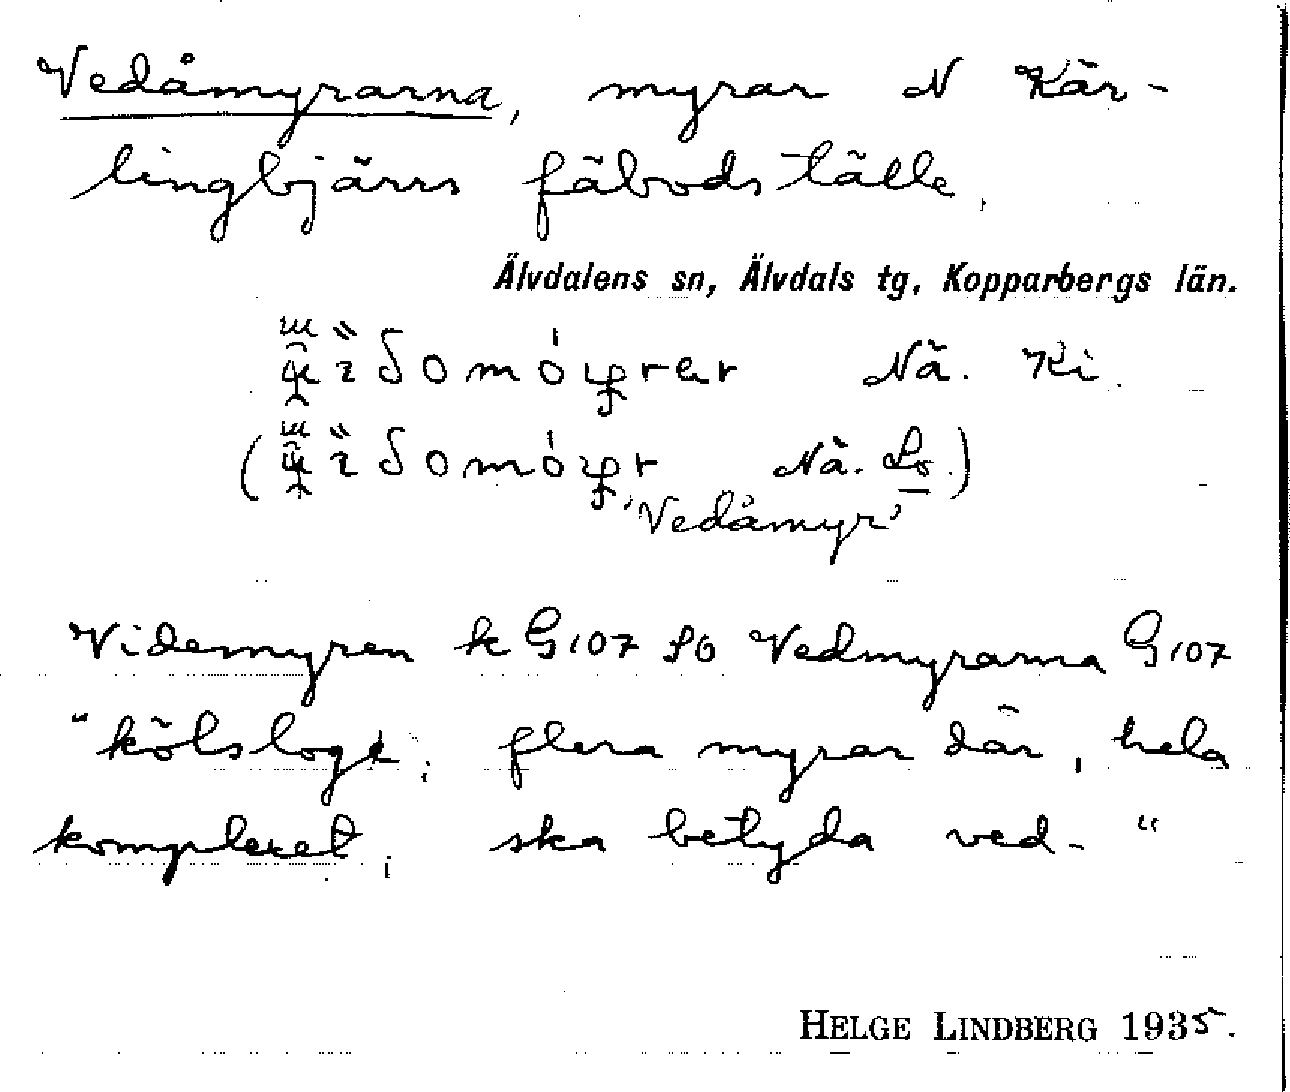 Vedåmyrarna, myrar N Kär-
lingbjärrs fäbodställe.
Älvdalens sn, Älvdals tg, Kopparbergs län.
Nä. Ki.
(Nä. Lo.)
'Vedåmyr'
Videmyren k G107 SO Vedmyrarna G107
"kölsloge; flera myrar där, hela
komplexet; ska betyda ved-"
HELGE LINDBERG 1935.